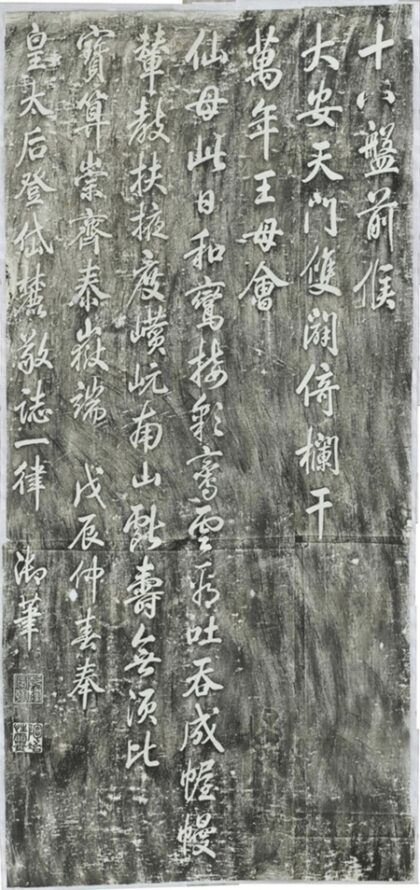 十八盤前候
大安天門雙闢倚欄干
萬年王母會
仙母此日和鸞接彩鸞雲為吐吞成幄幔
輦教扶掖度巑岏南山獻壽無須比
寶算崇齊泰嶽端 戊辰仲春奉
皇太后登岱麓敬誌一律 御筆